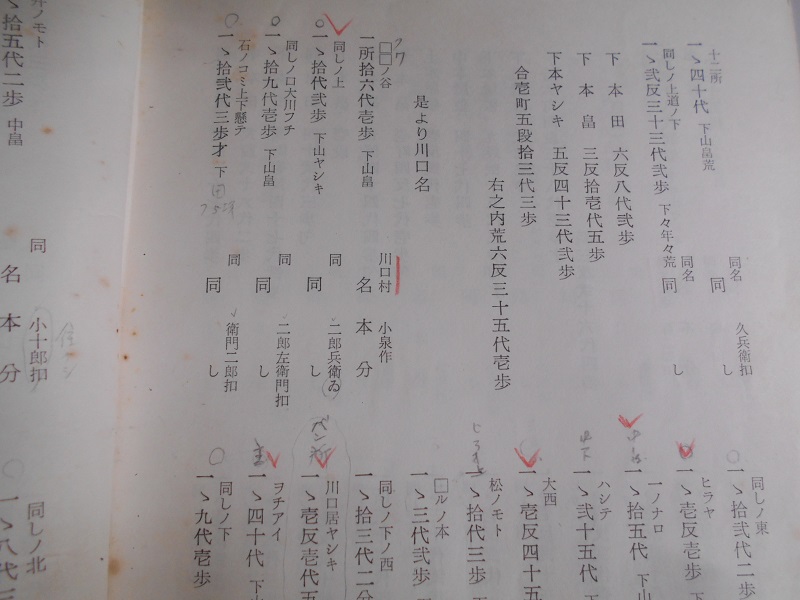 十二所
一ゝ四十代 下山畠荒
同名
同 し
久兵衛扣
同しノ上道ノ下
一ゝ弐反三十三代弐歩 下々年々荒
同名
同 し
下本田 六反八代弐歩
下本畠 三反拾壱代五歩
下本ヤシキ 五反四十三代弐歩
合壱町五段拾三代三歩
右之内荒六反三十五代壱歩
是より川口名
□□ノ谷
一所拾六代壱歩 下山畠
川口村 小泉作
名本分
同しノ上
一ゝ拾代弐歩 下山ヤシキ
同 二郎兵衛ゐ
同 し
同しノ口大川フチ
一ゝ拾九代壱歩 下山畠
同 二郎左衛門扣
同 し
石ノコミ上下懸テ
一ゝ拾弐代三歩才 下
同 衛門二郎扣
同 し
井ノモト
ゝ拾五代二歩 中畠
同 小十郎扣
名本分
同しノ東
一ゝ拾弐代二歩
ヒラヤ
一ゝ壱反壱歩
一ノナロ
一ゝ拾五代 下山
ハシテ
一ゝ弐十五代
大西
一ゝ壱反四十五
松ノモト
一ゝ拾代三歩
□ルノ本
一ゝ三代弐歩
同しノ下ノ西
一ゝ拾三代二分
川口居ヤシキ
一ゝ壱反壱代五
ヲチアイ
一ゝ四十代 下山
同しノ下
一ゝ九代壱歩
同しノ北
一ゝ八代三